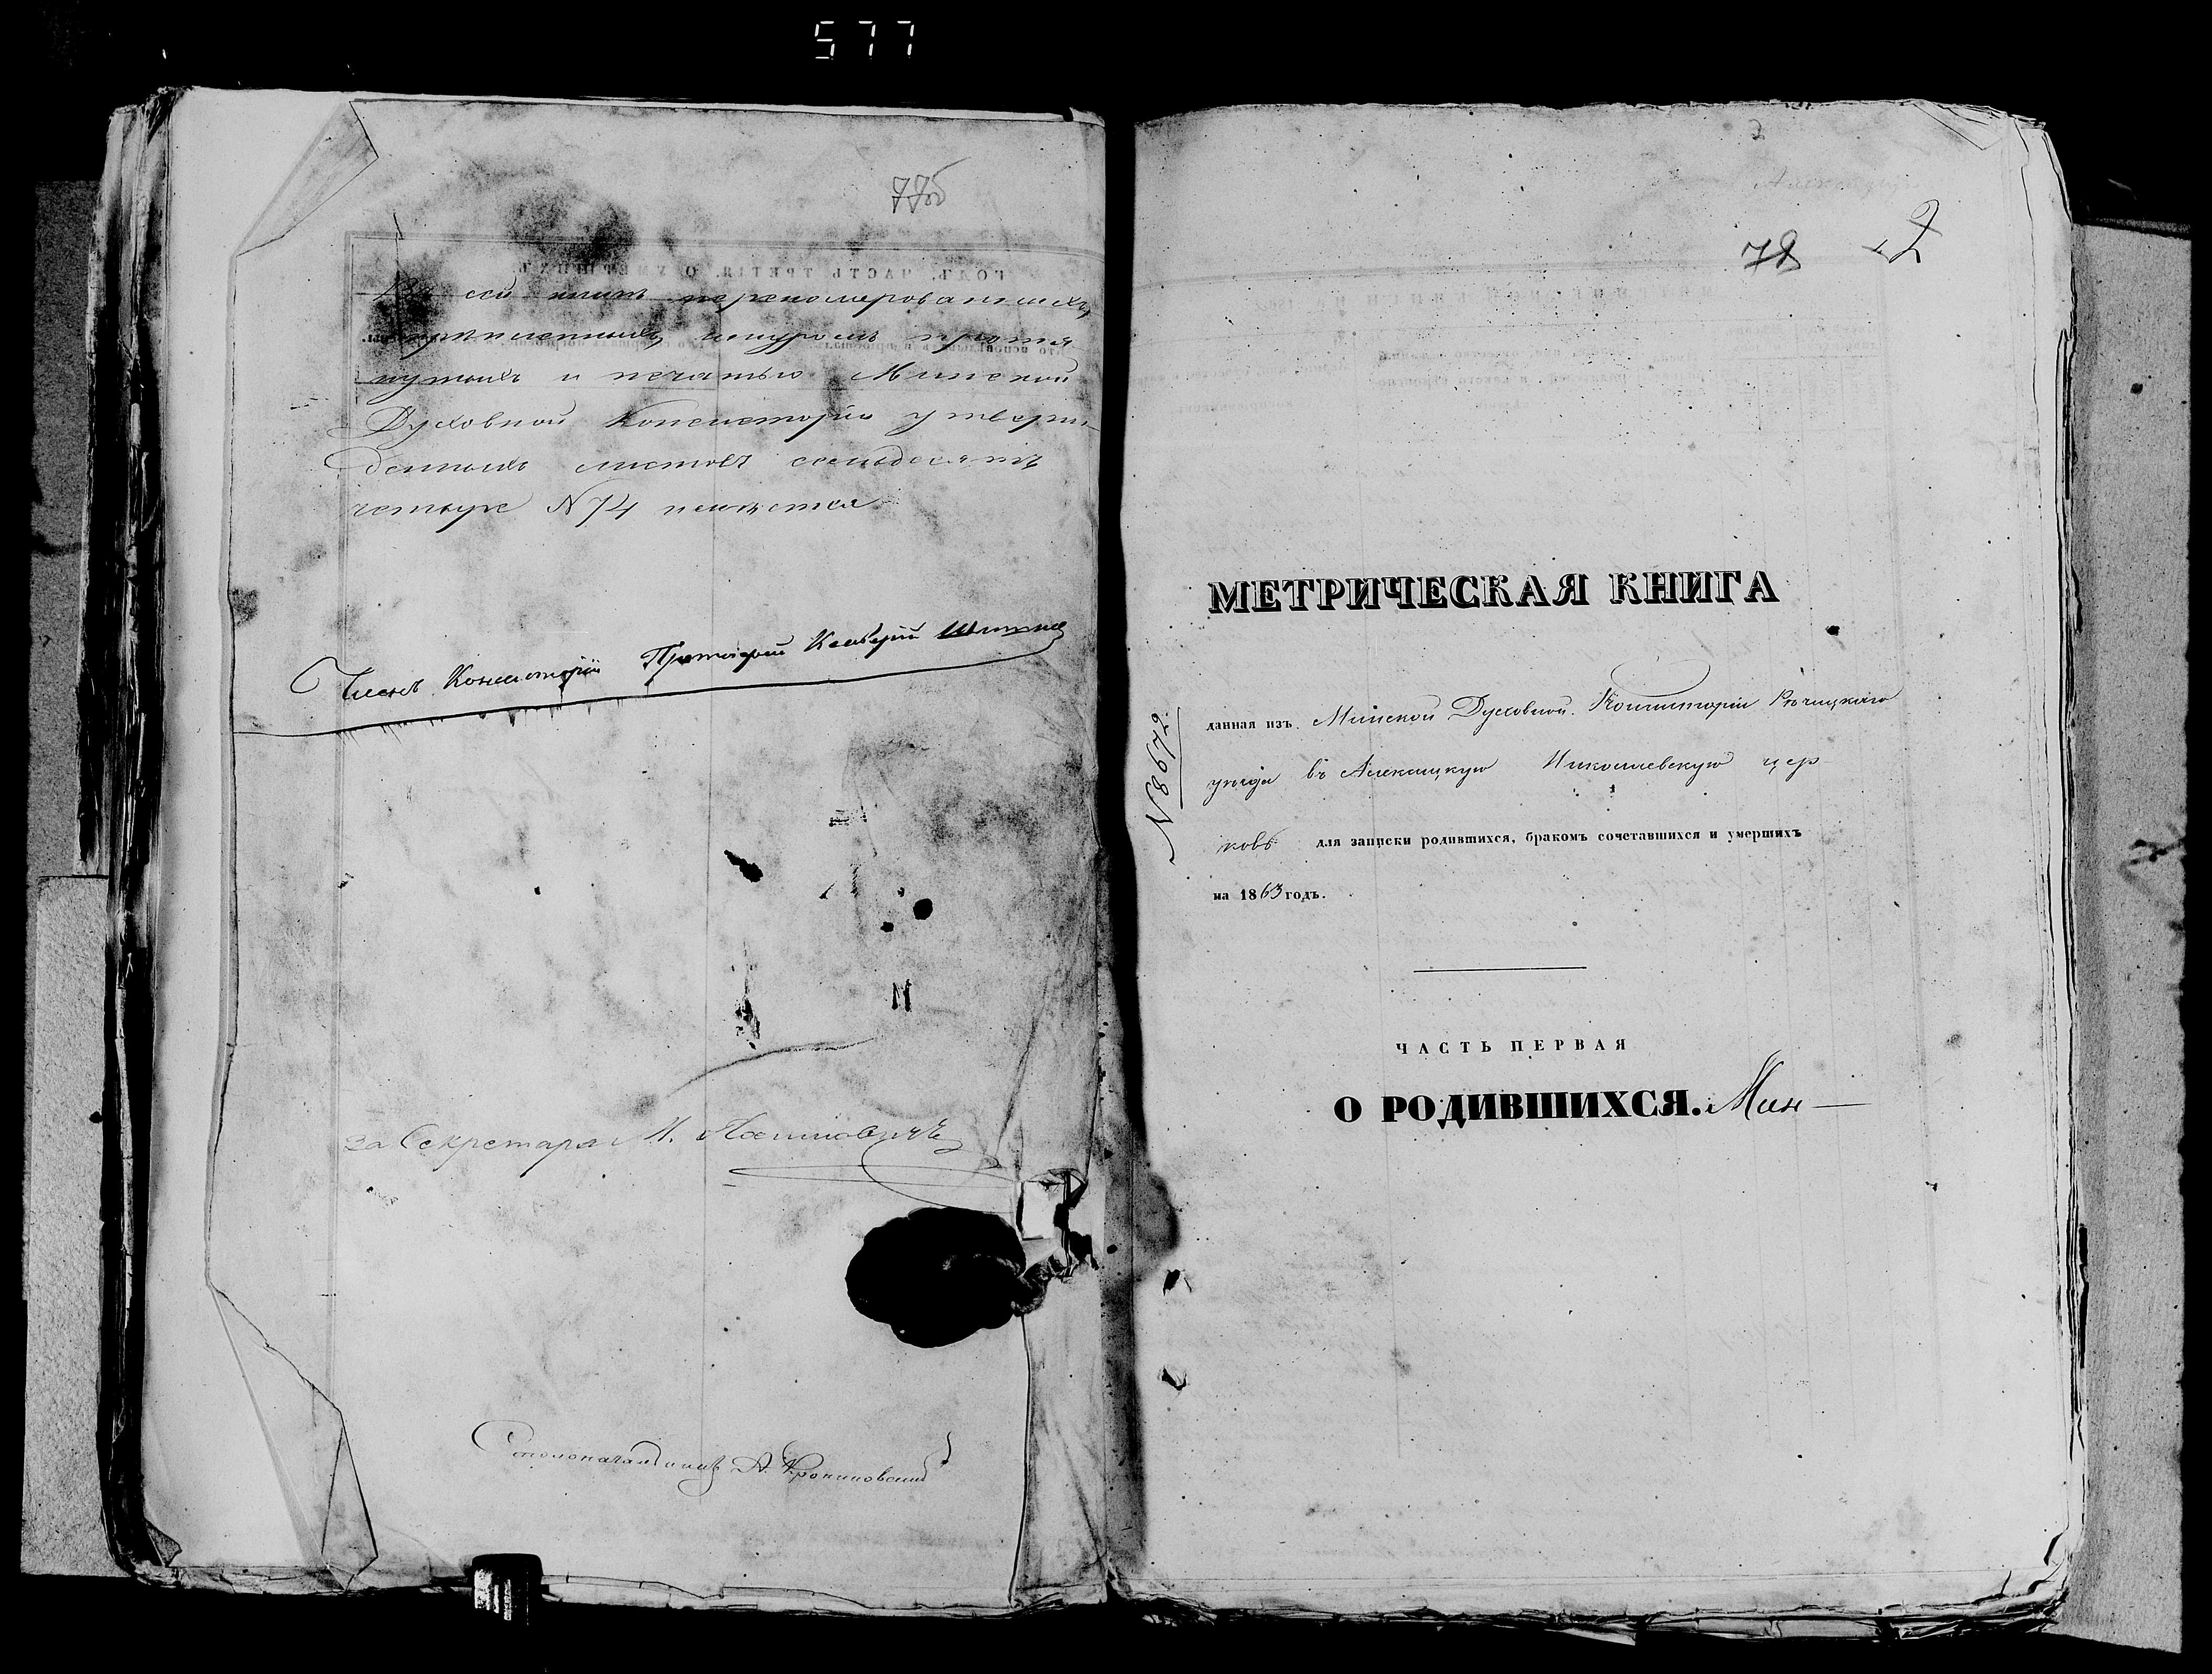 577
77об
сей книгѣ перенумерованныхъ,
шнуромъ протя
нутыхъ и печатью Минской
Духовной Консисторіи утверж
денныхъ листовъ семьдесятъ
четыре N 74 имѣется
Членъ Консисторіи Протоіерей
За Секретаря М.
Столоначальникъ А.
2
78
МЕТРИЧЕСКАЯ КНИГА
N 8672
данная изъ Минской Духовной Консисторіи Рѣчицкаго
уѣзда въ Алексицкую Николаевскую цер
ковь для записки родившихся, бракомъ сочетавшихся и умершихъ
на 1863 годъ.
ЧАСТЬ ПЕРВАЯ
О РОДИВШИХСЯ. Мин